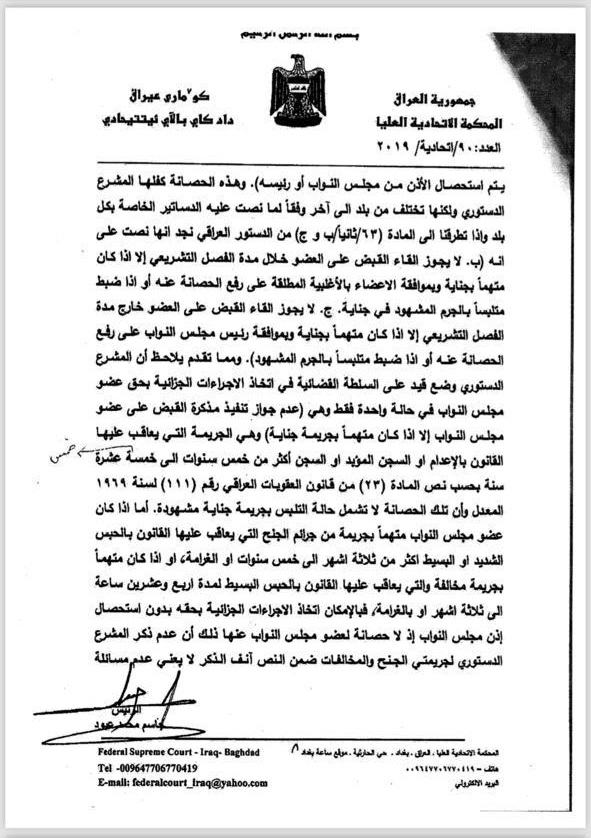 بسم الله الرحمن الرحيم
كو٘ماری عیراق
داد گاى بالآى ئیتتیحادی
جمهورية العراق
المحكمة الاتحادية العليا
العدد: ٩٠/اتحادية/ ٢٠١٩
يتم استحصال الأذن من مجلس النواب أو رئيسه). وهذه الحصانة كفلها المشرع
الدستوري ولكنها تختلف من بلد الى آخر وفقاً لما نصت عليه الدساتير الخاصة بكل
بلد واذا تطرقنا الى المادة (٦٣/ثانيا/ب و ج) من الدستور العراقي نجد انها نصت على
انه (ب. لا يجوز القاء القبض على العضو خلال مدة الفصل التشريعي إلا اذا كان
متهماً بجناية وبموافقة الاعضاء بالأغلبية المطلقة على رفع الحصانة عنه أو اذا ضبط
متلبساً بالجرم المشهود في جناية. ج. لا يجوز القاء القبض على العضو خارج مدة
الفصل التشريعي إلا اذا كان متهماً بجناية وبموافقة رئيس مجلس النواب على رفع
الحصانة عنه أو اذا ضبط متلبساً بالجرم المشهود). ومما تقدم يلاحظ أن المشرع
الدستوري وضع قيد على السلطة القضائية في اتخاذ الاجراءات الجزائية بحق عضو
مجلس النواب في حالة واحدة فقط وهي (عدم جواز تنفيذ مذكرة القبض على عضو
مجلس النواب إلا اذا كان متهماً بجريمة جناية) وهي الجريمة التي يعاقب عليها
القانون بالإعدام او السجن المؤبد او السجن أكثر من خمس سنوات الى خمسة عشرة
خمس
سنة بحسب نص المادة (٢٣) من قانون العقوبات العراقي رقم (١١١) لسنة ١٩٦٩
المعدل وأن تلك الحصانة لا تشمل حالة التلبس بجريمة جناية مشهودة. أما اذا كان
عضو مجلس النواب متهماً بجريمة من جرائم الجنح التي يعاقب عليها القانون بالحبس
الشديد او البسيط اكثر من ثلاثة اشهر الى خمس سنوات او الغرامة، او اذا كان متهماً
بجريمة مخالفة والتي يعاقب عليها القانون بالحبس البسيط لمدة اربع وعشرين ساعة
الى ثلاثة اشهر او بالغرامة، فبالإمكان اتخاذ الاجراءات الجزائية بحقه بدون استحصال
إذن مجلس النواب إذ لا حصانة لعضو مجلس النواب عنها ذلك أن عدم ذكر المشرع
الدستوري لجريمتي الجنح والمخالفات ضمن النص آنف الذكر لا يعني عدم مسائلة
الرئيس
جاسم محمد عبود
Federal Supreme Court - Iraq- Baghdad
Tel -009647706770419
E-mail: federalcourt_iraq@yahoo.com
المحكمة الاتحادية العليا . العراق . بغداد . حي الحارثية . موقع ساعة بغداد
٨
هاتف – ٠٠٩٦٤٧٧٠٦٧٧٠٤١٩
البريد الالكتروني